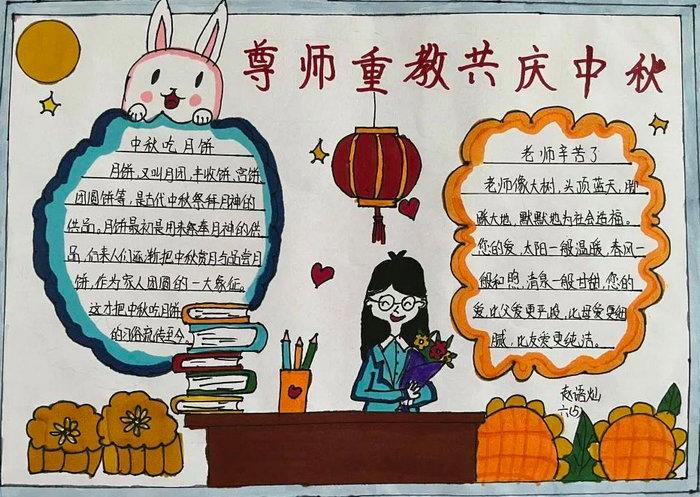 尊师重教共庆中秋
中秋吃月饼
月饼,又叫月团、丰收饼、宫饼、
团圆饼等,是古代中秋祭拜月神的
供品。月饼最初是用来祭奉月神的供
品,后来人们逐渐把中秋赏月与品尝月
饼,作为家人团圆的一大象征。
这才把中秋吃月饼
的习俗流传至今。
老师辛苦了
老师像大树,头顶蓝天,脚
踩大地,默默地为社会造福。
您的爱,太阳一般温暖,春风一
般和煦,清泉一般甘甜,您的
爱,比父爱更严峻,比母爱更细
腻,比友爱更纯洁。
赵语灿
六(5)